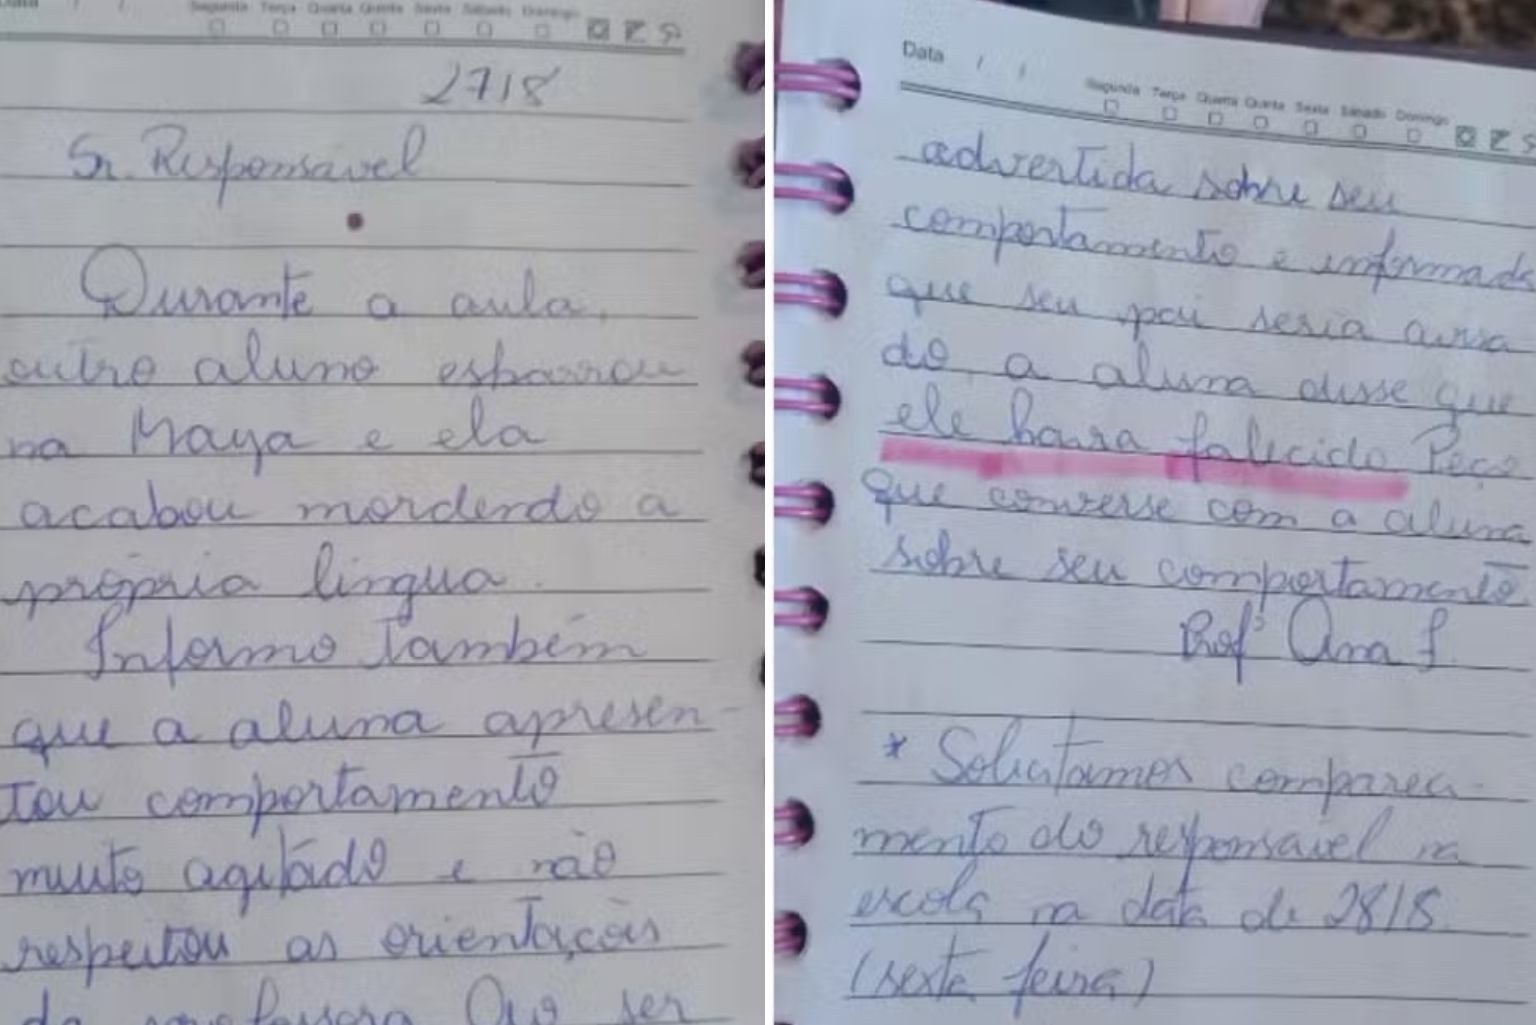 Data / /
Segunda Terça Quarta Quinta Sexta Sábado Domingo
27/8
Sr. Responsavel
Durante a aula,
outro aluno esbarrou
na Maya e ela
acabou mordendo a
própria lingua.
Informo também
que a aluna apresen-
tou comportamento
muito agitado e não
respeitou as orientações
da professora. Ao ser
Data / /
Segunda Terça Quarta Quinta Sexta Sábado Domingo
advertida sobre seu
comportamento e informada
que seu pai seria avisa
do a aluna disse que
ele havia falecido Peço
que converse com a aluna
sobre seu comportamento.
Profª Ana f.
* Solicitamos compareci-
mento do responsavel na
escola na data de 28/8.
(sexta feira)